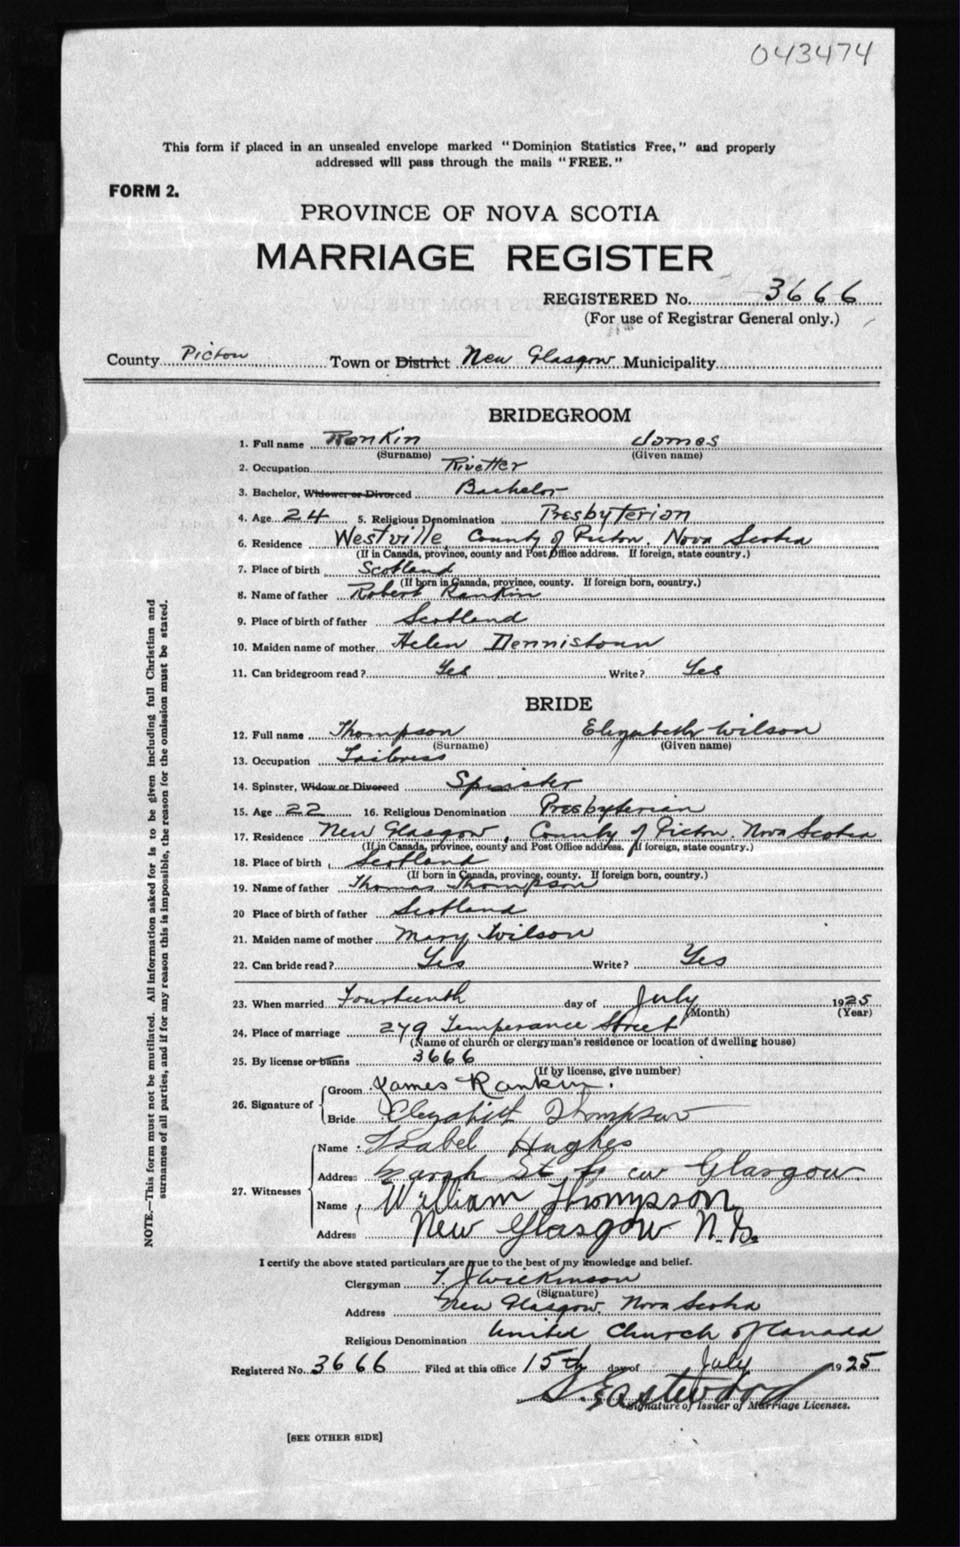 043474
This form if placed in an unsealed envelope marked "Dominion Statistics Free," and properly
addressed will pass through the mails "FREE."
FORM 2.
PROVINCE OF NOVA SCOTIA
MARRIAGE REGISTER
REGISTERED No. 3666
(For use of Registrar General only.)
County Pictou Town or District New Glasgow Municipality
BRIDEGROOM
1. Full name Rankin James
(Surname) (Given name)
2. Occupation Rivetter
3. Bachelor, Widower or Divorced Bachelor
4. Age 24 5. Religious Denomination Presbyterian
6. Residence Westville, County of Pictou, Nova Scotia
(If in Canada, province, county and Post Office address. If foreign, state country.)
7. Place of birth Scotland
(If born in Canada, province, county. If foreign born, country.)
8. Name of father Robert Rankin
9. Place of birth of father Scotland
10. Maiden name of mother Helen Dennistoun
11. Can bridegroom read? Yes Write? Yes
BRIDE
12. Full name Thompson Elizabeth Wilson
(Surname) (Given name)
13. Occupation Tailoress
14. Spinster, Widow or Divorced Spinster
15. Age 22 16. Religious Denomination Presbyterian
17. Residence New Glasgow, County of Pictou, Nova Scotia
(If in Canada, province, county and Post Office address. If foreign, state country.)
18. Place of birth Scotland
(If born in Canada, province, county. If foreign born, country.)
19. Name of father Thomas Thompson
20 Place of birth of father Scotland
21. Maiden name of mother Mary Wilson
22. Can bride read? Yes Write? Yes
23. When married Fourteenth day of July 1925
(Month) (Year)
24. Place of marriage 279 Temperance Street
(Name of church or clergyman's residence or location of dwelling house)
25. By license or banns 3666
(If by license, give number)
26. Signature of Groom James Rankin.
Bride Elizabeth Thompson
27. Witnesses
Name Isabel Hughes
Address St New Glasgow
Name William Thompson
Address New Glasgow N.S.
I certify the above stated particulars are true to the best of my knowledge and belief.
Clergyman Wilkinson
(Signature)
Address New Glasgow, Nova Scotia
Religious Denomination United Church of Canada
Registered No. 3666 Filed at this office 15th day of July 1925
S. Eastwood
Signature of Issuer of Marriage Licenses.
[SEE OTHER SIDE]
NOTE.—This form must not be mutilated. All information asked for is to be given including full Christian and
surnames of all parties, and if for any reason this is impossible, the reason for the omission must be stated.